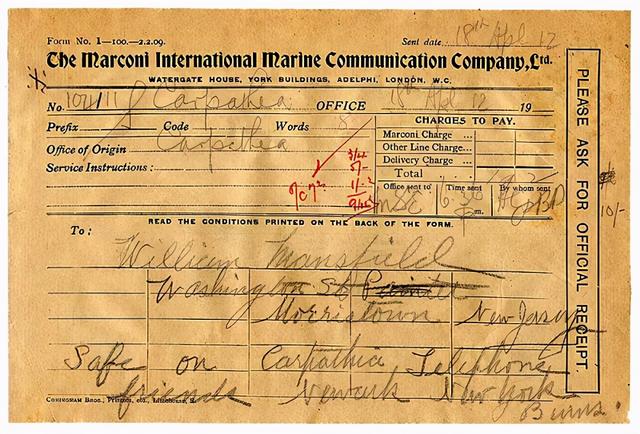 Form No. 1—100.—2.2.09.
Sent date 18th Apl 12
The Marconi International Marine Communication Company, Ltd.
WATERGATE HOUSE, YORK BUILDINGS, ADELPHI, LONDON, W.C.
No. Carpathea OFFICE 18th Apl 12 19
Prefix S Code Words 8
CHARGES TO PAY.
Office of Origin Carpathea
Marconi Charge ...
Service Instructions:
Other Line Charge...
Delivery Charge ...
Total
Office sent to
Time sent
By whom sent
MSE
m.
READ THE CONDITIONS PRINTED ON THE BACK OF THE FORM.
To:
William Mansfield
Washington St
Morristown New Jersey
Safe on Carpathia Telephone
friends Newark New York
Burns.
CONINGHAM BROS., Printers, etc., Limehouse, E.
PLEASE ASK FOR OFFICIAL RECEIPT.
10/-